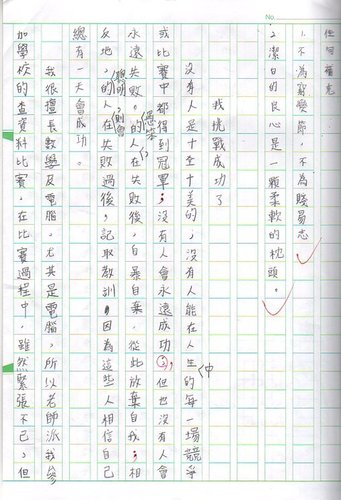 No.
佳句補充
1. 不為窮變節，不為賤易志。
2. 潔白的良心是一顆柔軟的枕頭。
我挑戰成功了
沒有人是十全十美的；沒有人能在人生中的每一場競爭
或比賽中都得到冠軍；沒有人會永遠成功；但也沒有人會
永遠失敗。愚笨的人在失敗後，自暴自棄，從此放棄自我；相
反地，聰明的人在失敗過後，則會記取教訓，因為這些人相信自己
總有一天會成功。
我很擅長數學及電腦，尤其是電腦，所以老師派我參
加學校的查資料比賽。在比賽過程中，雖然緊張不已，但